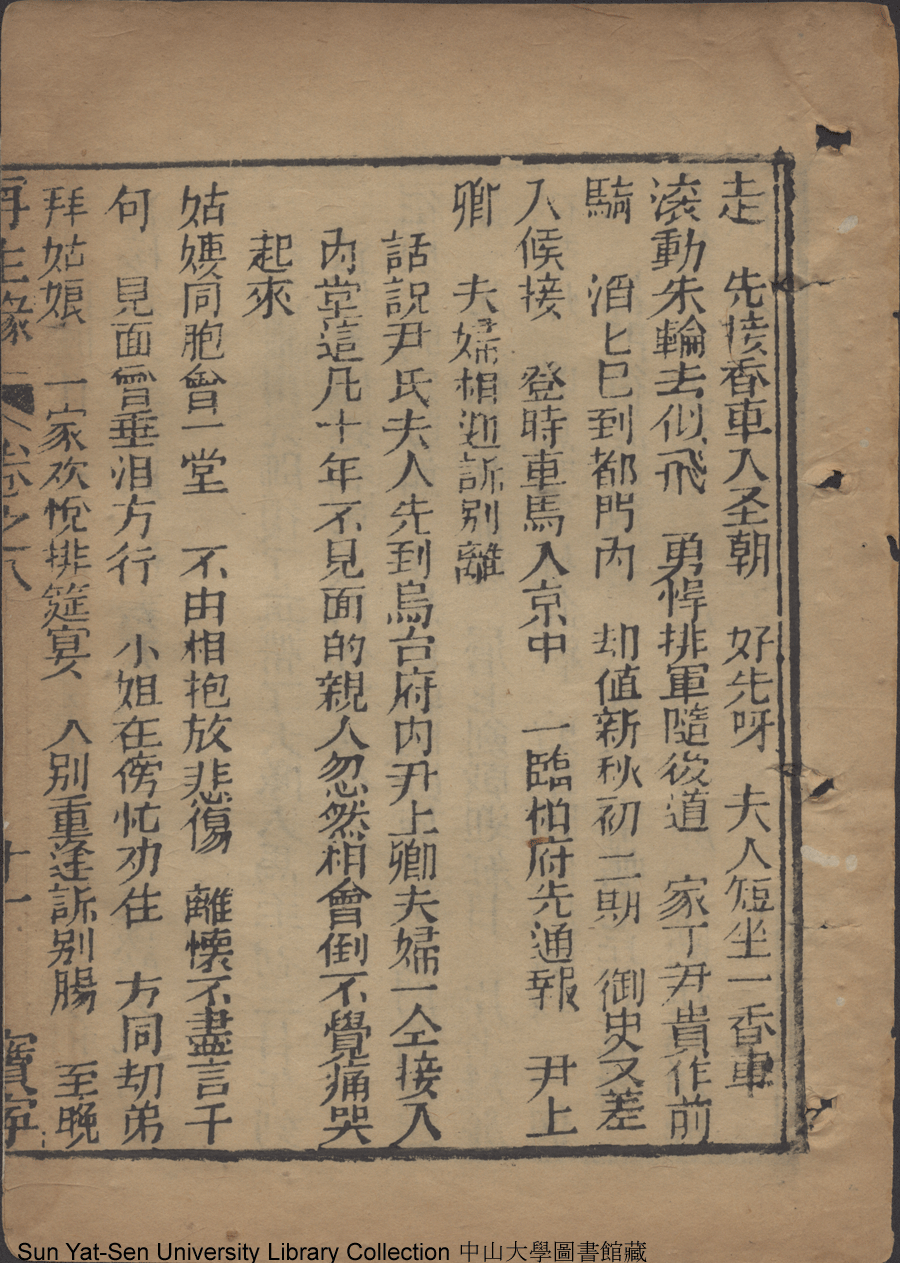 走　先接香車入圣朝　好先呀　夫人短坐一香車
滚動朱輪去似飛　勇悍排軍隨後道　家丁尹貴作前
騎　酒匕巳到都門内　却值新秋初二期　御史又差
人候接　登時車馬入京中　一臨柏府先通報　尹上
卿　夫婦相迎訴别離
話説尹氏夫人先到烏台府内尹上卿夫婦一仝接入
内堂這几十年不見面的親人忽然相會倒不覺痛哭
起來
姑嫂同胞會一堂　不由相抱放悲傷　離懷不盡言千
何　見面曾垂泪方行　小姐在傍忙劝住　方同刧弟
拜姑娘　一家欢悅排筵宴　久別重逢訴别腸　至晚
再生緣　卷之八　十一　寶寧
Sun Yat-Sen University Library Collection 中山大學圖書館藏